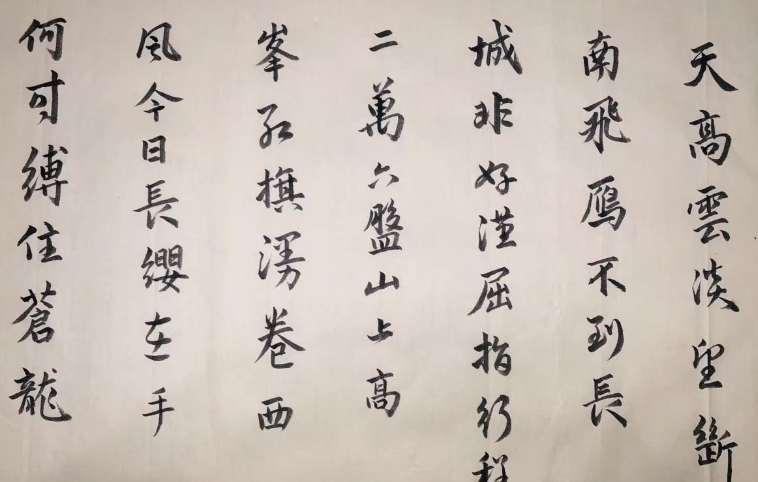 天高雲淡望斷
南飛雁不到長
城非好漢屈指行程
二萬六盤山上高
峯紅旗漫卷西
風今日長纓在手
何時縛住蒼龍